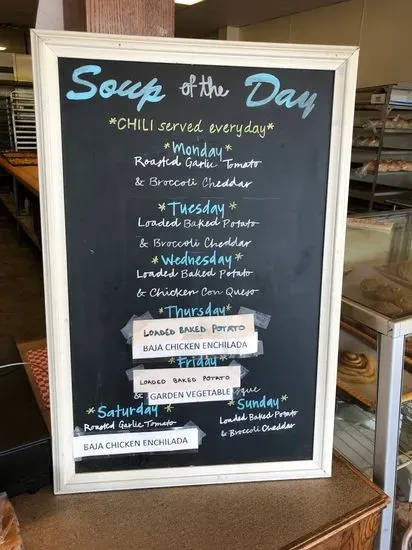 Soup of the Day
*CHILI served everyday*
*Monday*
Roasted Garlic Tomato
& Broccoli Cheddar
*Tuesday*
Loaded Baked Potato
& Broccoli Cheddar
*Wednesday*
Loaded Baked Potato
& Chicken Con Queso
*Thursday*
LOADED BAKED POTATO
BAJA CHICKEN ENCHILADA
*Friday*
LOADED BAKED POTATO
& GARDEN VEGETABLE que
*Saturday*
Roasted Garlic Tomato
BAJA CHICKEN ENCHILADA
*Sunday*
Loaded Baked Potato
& Broccoli Cheddar